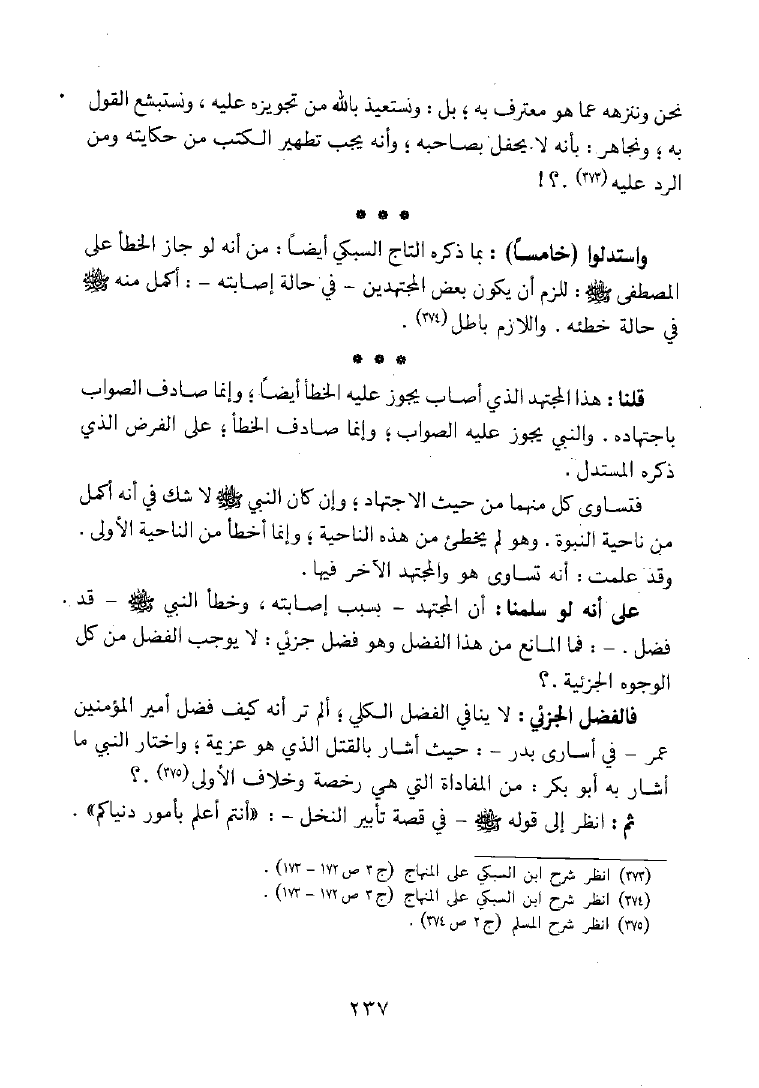 نحن وننزهه عما هو معترف به ؛ بل : ونستعيذ بالله من تجويزه عليه ، ونستبشع القول
به ؛ ونجاهر : بأنه لا يحفل بصاحبه ؛ وأنه يجب تطهير الكتب من حكايته ومن
الرد عليه (٣٧٣) .؟!
* * *
واستدلوا (خامساً) : بما ذكره التاج السبكي أيضاً : من أنه لو جاز الخطأ على
المصطفى ﷺ : للزم أن يكون بعض المجتهدين – في حالة إصابته – : أكمل منه ﷺ
في حالة خطئه . واللازم باطل (٣٧٤) .
* * *
قلنا : هذا المجتهد الذي أصاب يجوز عليه الخطأ أيضاً ؛ وإنما صادف الصواب
باجتهاده . والنبي يجوز عليه الصواب ؛ وإنما صادف الخطأ ؛ على الفرض الذي
ذكره المستدل .
فتساوى كل منهما من حيث الاجتهاد ؛ وإن كان النبي ﷺ لا شك في أنه أكمل
من ناحية النبوة . وهو لم يخطئ من هذه الناحية ؛ وإنما أخطأ من الناحية الأولى .
وقد علمت : أنه تساوى هو والمجتهد الآخر فيها .
على أنه لو سلمنا : أن المجتهد – بسبب إصابته ، وخطأ النبي ﷺ – قد
فضل . – : فما المانع من هذا الفضل وهو فضل جزئي : لا يوجب الفضل من كل
الوجوه الجزئية .؟
فالفضل الجزئي : لا ينافي الفضل الكلي ؛ ألم تر أنه كيف فضل أمير المؤمنين
عمر – في أسارى بدر – : حيث أشار بالقتل الذي هو عزيمة ؛ واختار النبي ما
أشار به أبو بكر : من المفاداة التي هي رخصة وخلاف الأولى (٣٧٥) .؟
ثم : انظر إلى قوله ﷺ – في قصة تأبير النخل – : «أنتم أعلم بأمور دنياكم» .
(٣٧٣) انظر شرح ابن السبكي على المنهاج (ج ٣ ص ١٧٢ – ١٧٣) .
(٣٧٤) انظر شرح ابن السبكي على المنهاج (ج ٣ ص ١٧٢ – ١٧٣) .
(٣٧٥) انظر شرح المسلم (ج ٢ ص ٣٧٤) .
٢٣٧